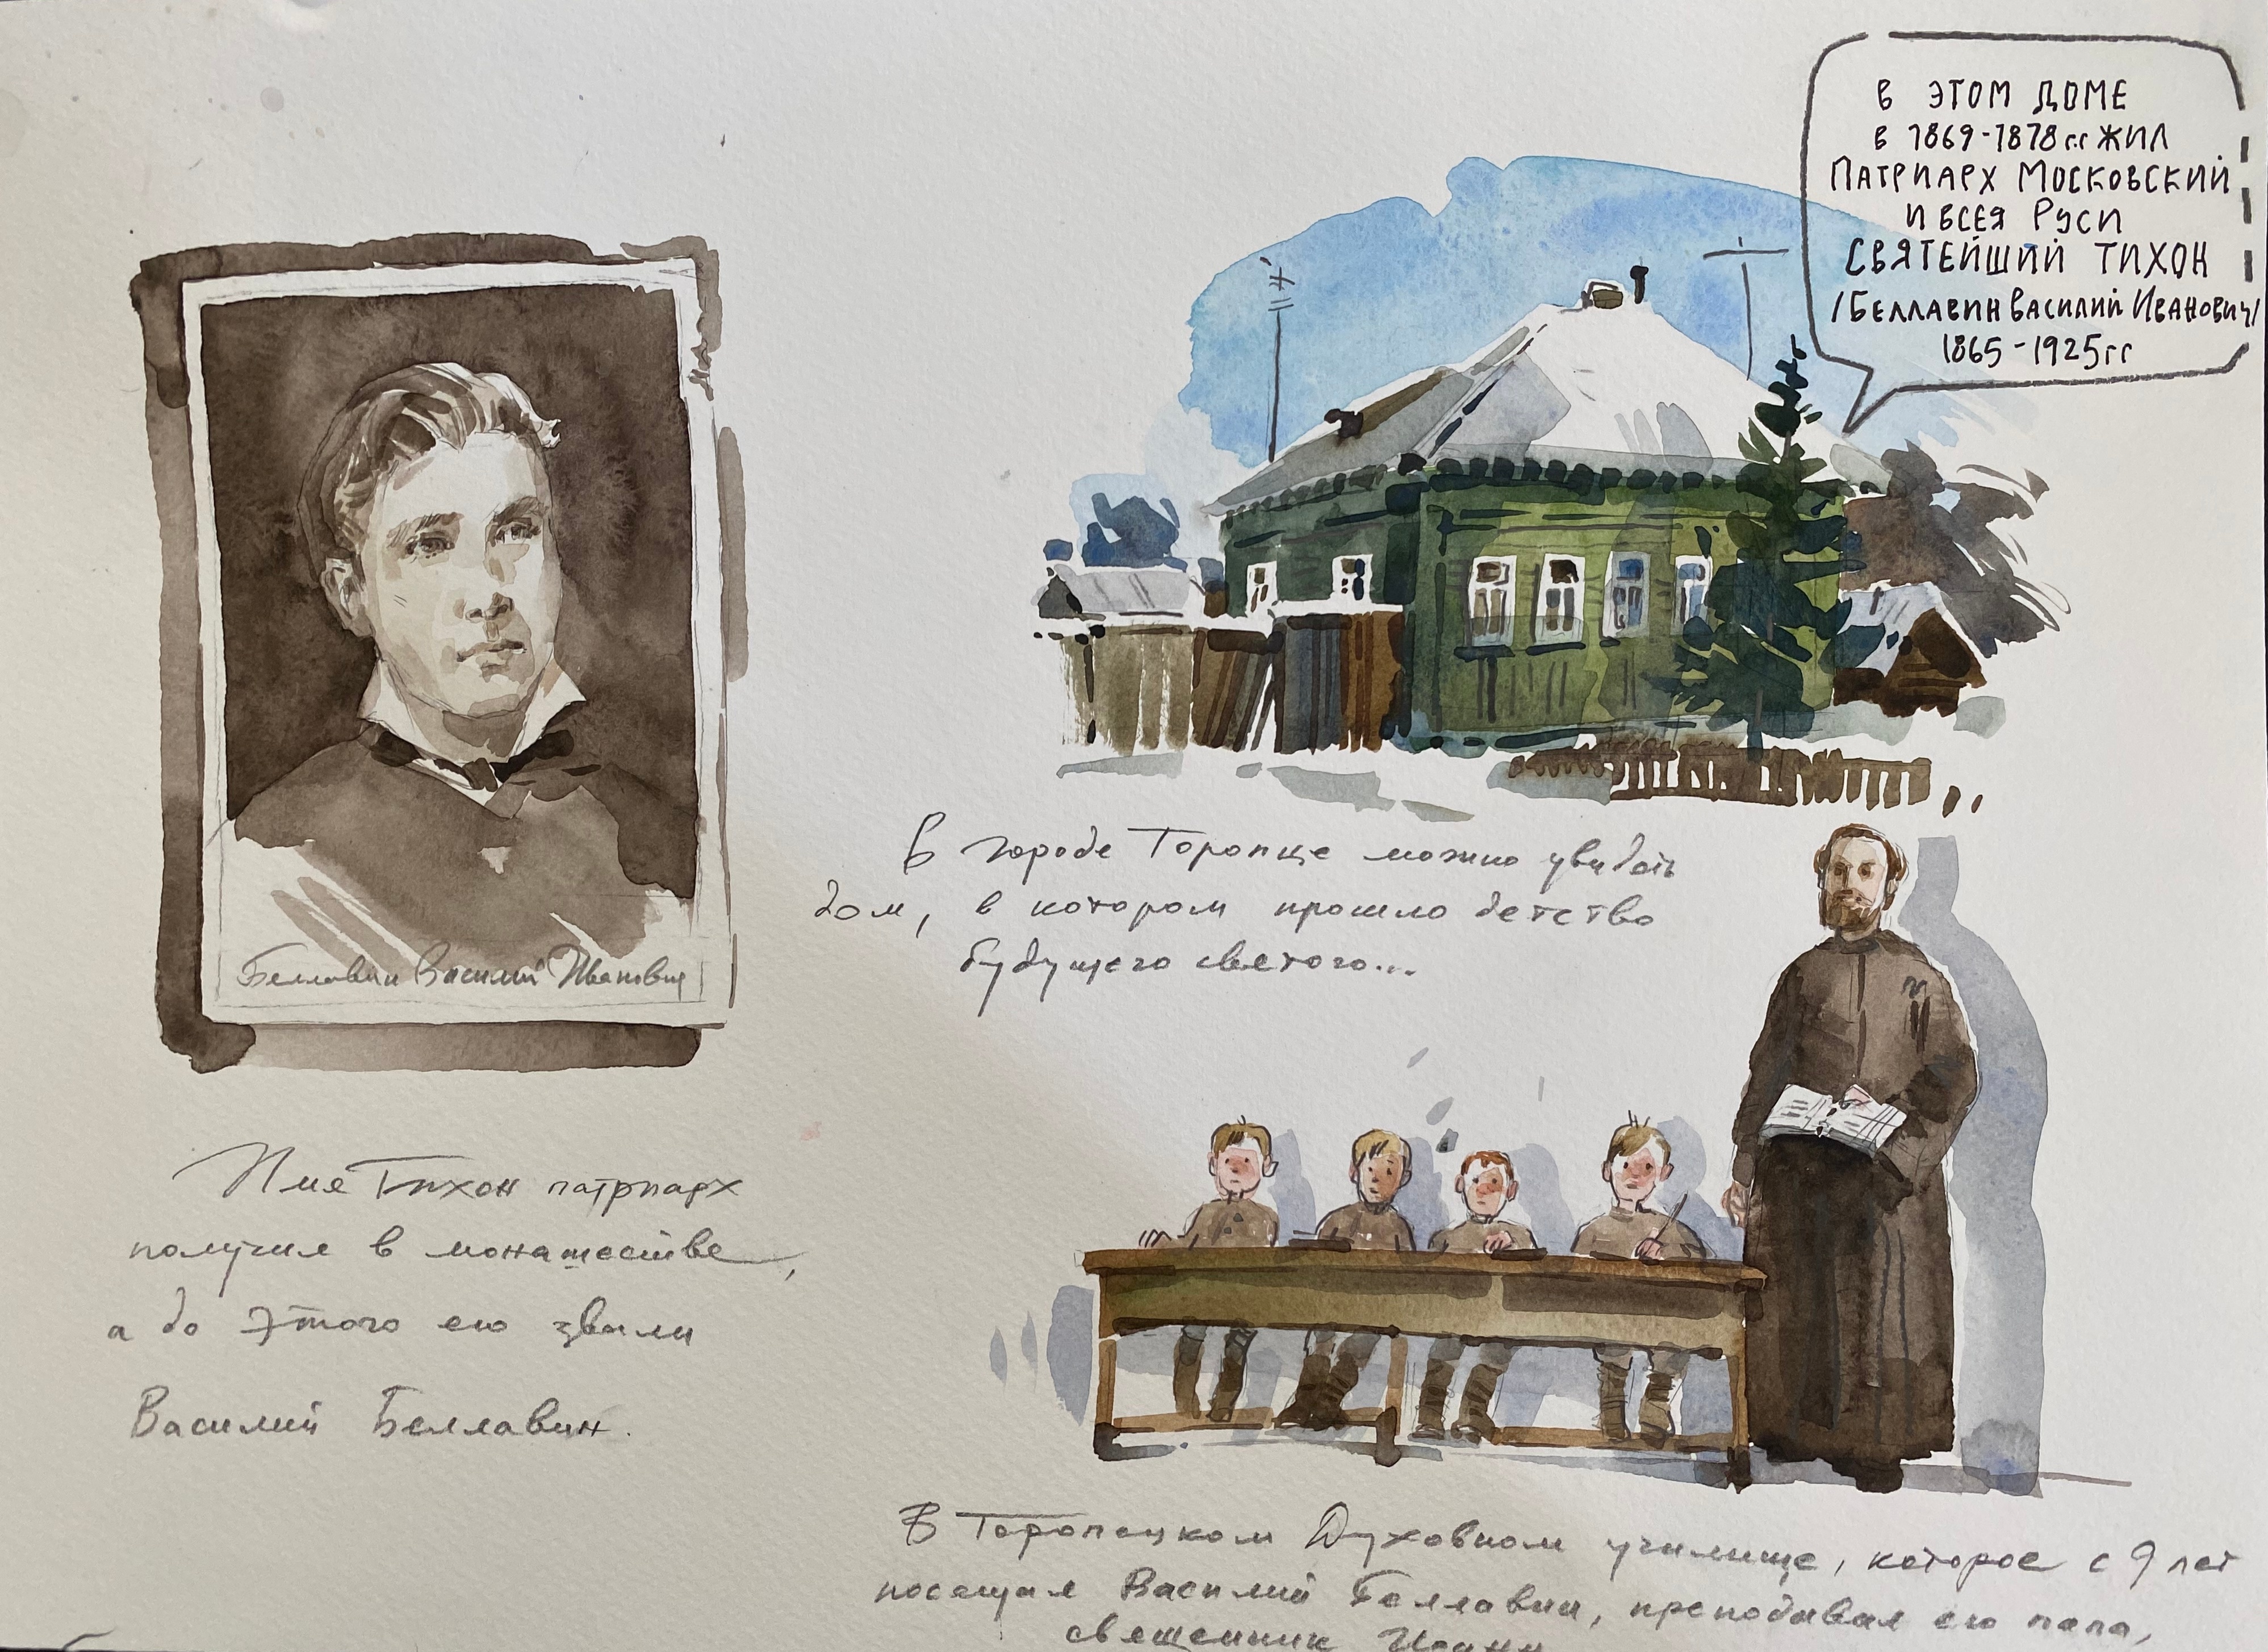 В ЭТОМ ДОМЕ
в 1869-1878 г.г ЖИЛ
ПАТРИАРХ МОСКОВСКИЙ
И ВСЕЯ РУСИ
СВЯТЕЙШИЙ ТИХОН
/БЕЛЛАВИН ВАСИЛИЙ ИВАНОВИЧ/
1865-1925 гг
Беллавин Василий Иванович
В городе Торопце можно увидеть
дом, в котором прошло детство
будущего святого...
Имя Тихон патриарх
получил в монашестве,
а до этого его звали
Василий Беллавин.
В Торопецком Духовном училище, которое с 9 лет
посещал Василий Беллавин, преподавал его папа,
священник Иоанн